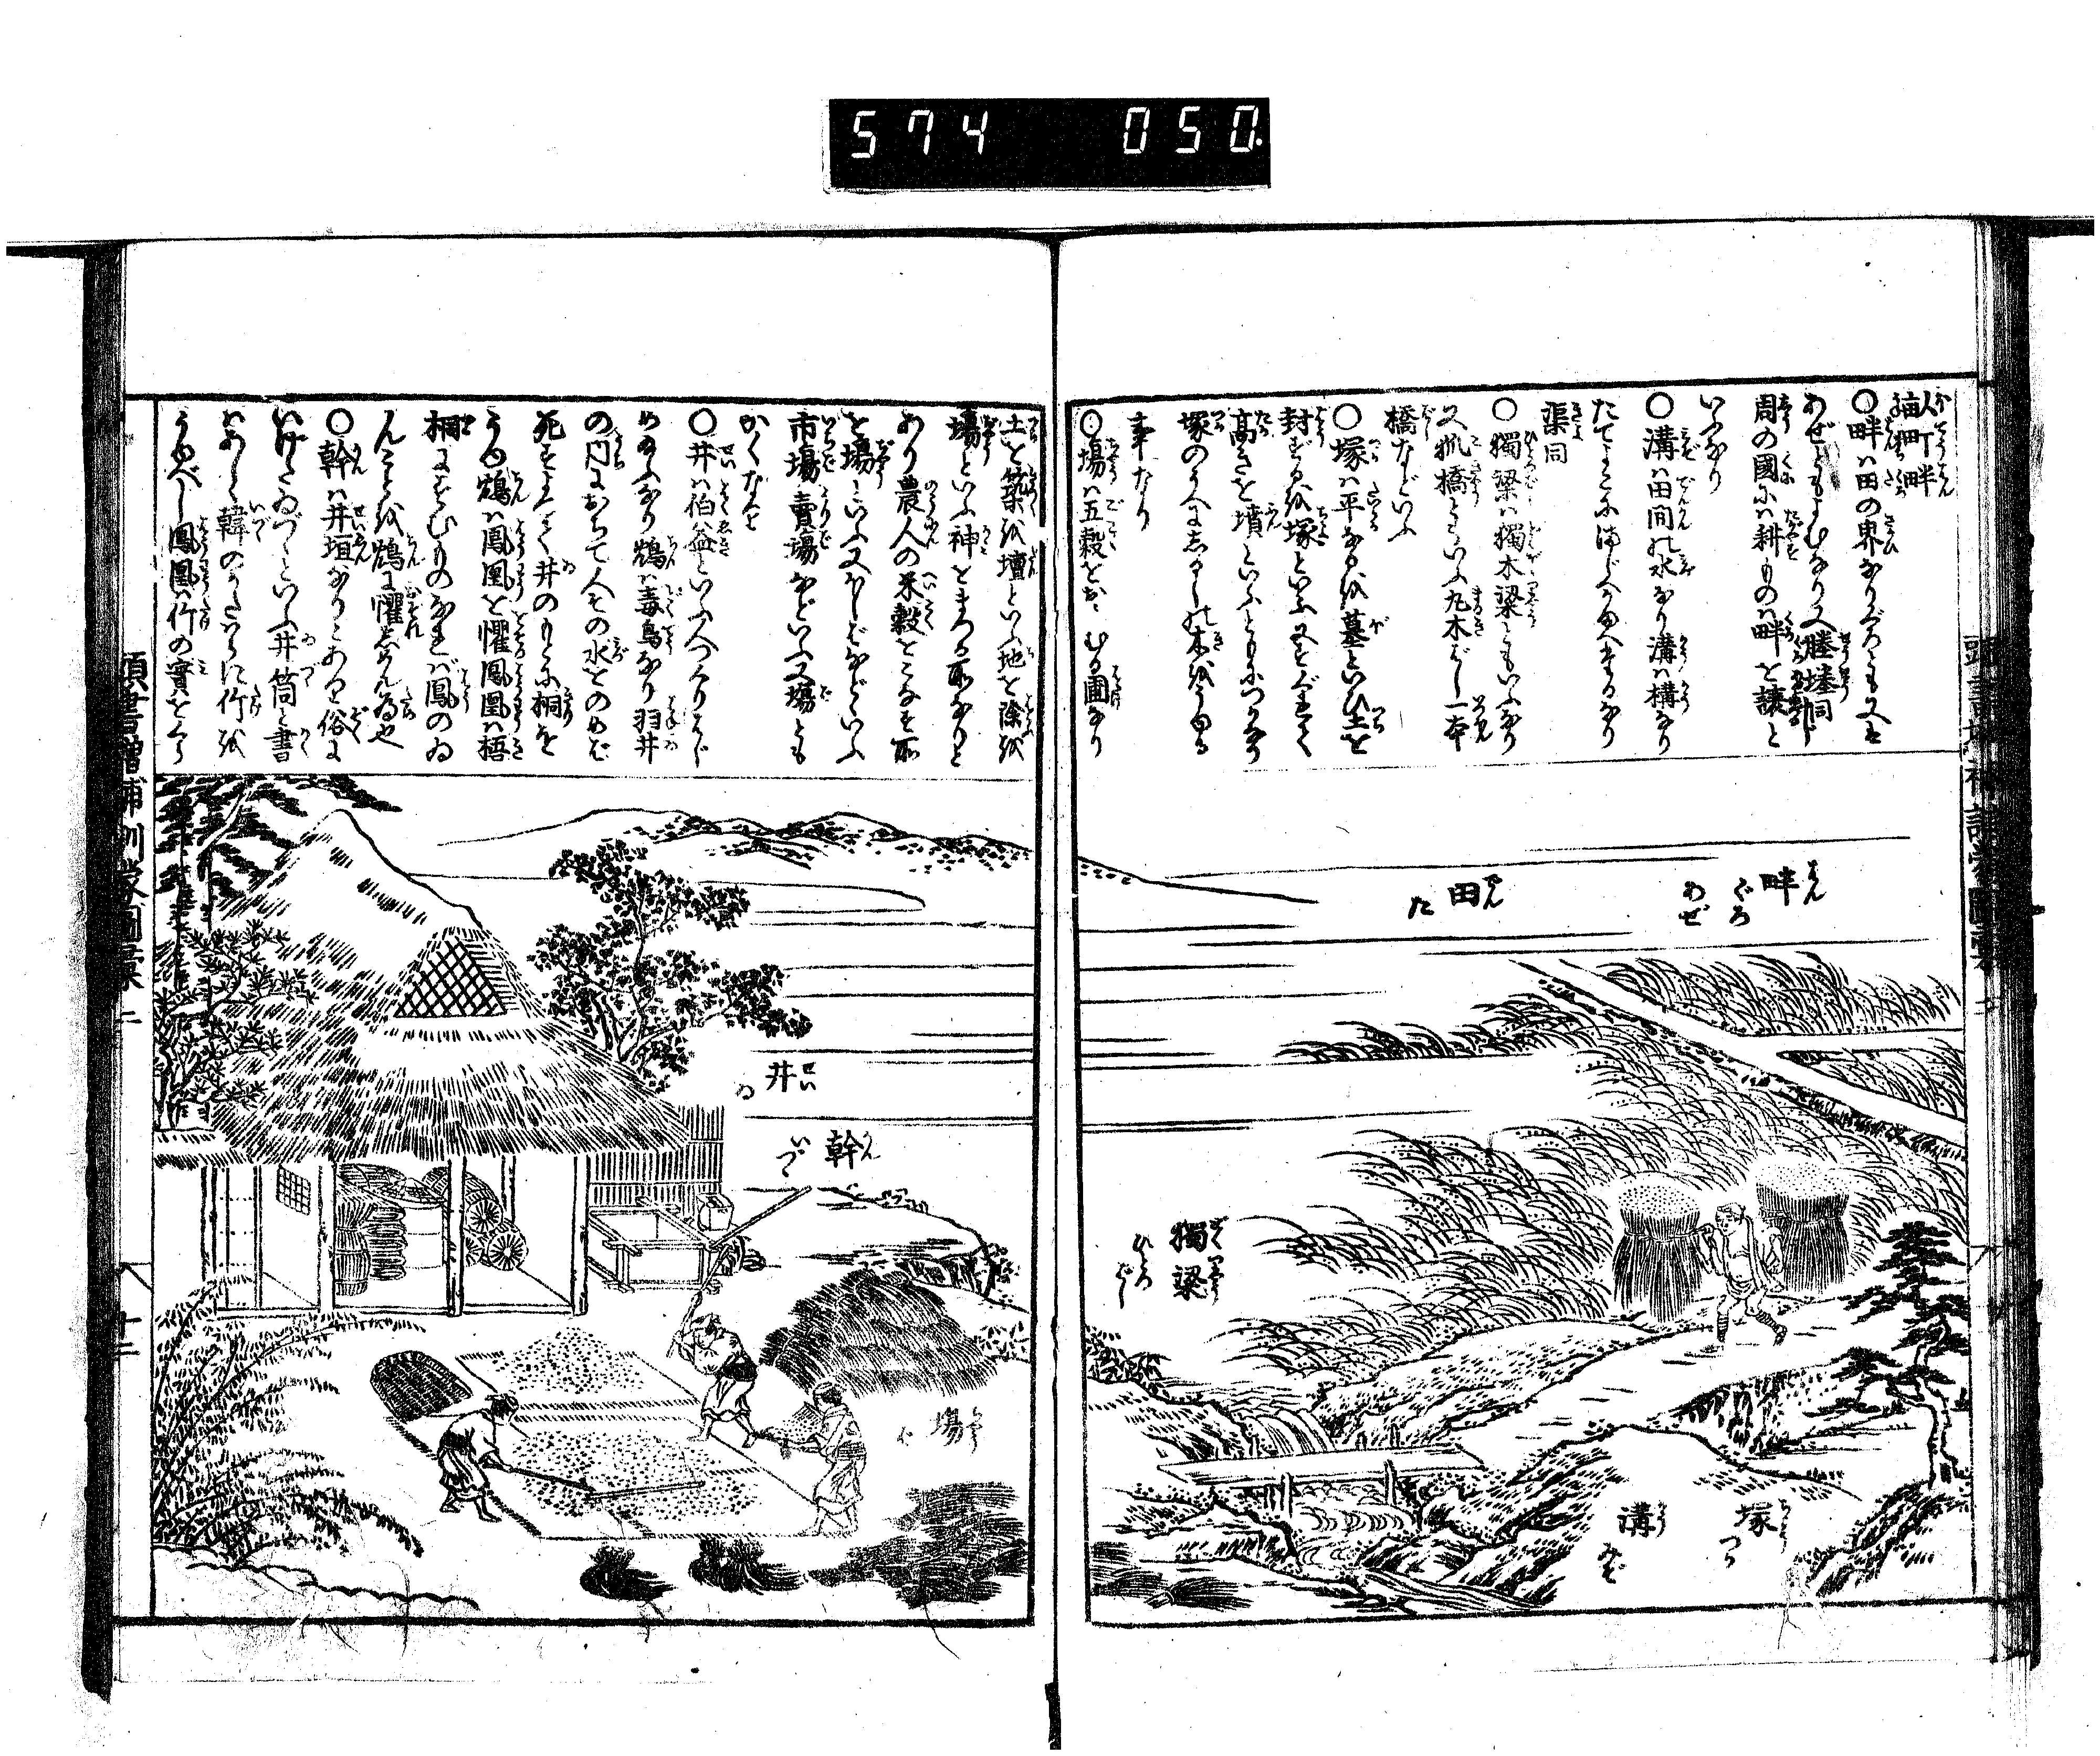 574 050.
○畔ハ田の界なりぐろとも又は
あぜともよむなり又塍埄同
周の國にハ耕ものハ畔を譲と
いふなり
○溝ハ田間の水なり溝ハ構なり
たてよこにまじへかまへするなり
渠同
○獨梁ハ獨木梁ともいふなり
又矼橋ともいふ丸木ばし一本
橋などいふ
○塚ハ平なるを墓といひ土を
封ずるを塚といふ又
高きを墳といふともにつかなり
塚のうへにしるしの木をうゆる
事なり
○場ハ五穀をおさむる圃なり
土を築を壇といふ地を除を
場といふ神をまつる所なりと
あり農人の米穀をこなす所
を場といふ又
市場賣場などいふ又塲とも
かくなり
○井ハ伯益といふ人つくりはじ
めたるなり鴆ハ毒鳥なり羽井
の内におちて人その水をのめば
死すよつて井のもとに桐を
うゆ鴆ハ鳳凰を懼鳳凰ハ梧
桐にすむものなれバ鳳のゐ
んことを鴆に懼しめん為也
○幹ハ井垣なり俗に
いげたゐづゝといふ井筒と書
ハあし韓のかたハらに竹を
うゆべし鳳凰ハ竹の實をくら
畔 はん ぐろ あぜ
田 でん た
獨梁 ひとつばし
塚 ちよう つか
溝 こう みぞ
井 せい ゐ
幹 かん いづゝ
場 ぢやう ば
頭書増補訓蒙圖彙 二